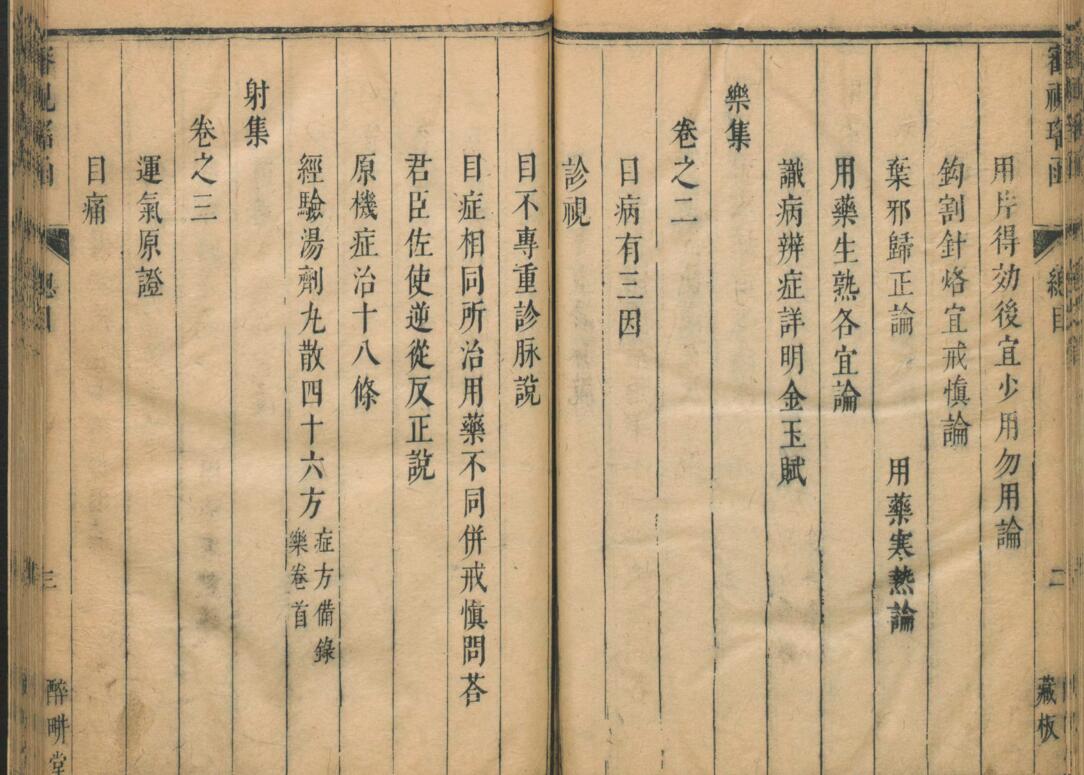 審視瑤函
總目
二
藏板
用片得効後宜少用勿用論
鈎割針烙宜戒慎論
棄邪歸正論 用藥寒熱論
用藥生熟各宜論
識病辨症詳明金玉賦
樂集
卷之二
目病有三因
診視
目不專重診脉說
目症相同所治用藥不同併戒慎問荅
君臣佐使逆從反正說
原機症治十八條
經驗湯劑丸散四十六方 症方備錄
樂卷首
射集
卷之三
運氣原證
目痛
總目
三
醉畊堂